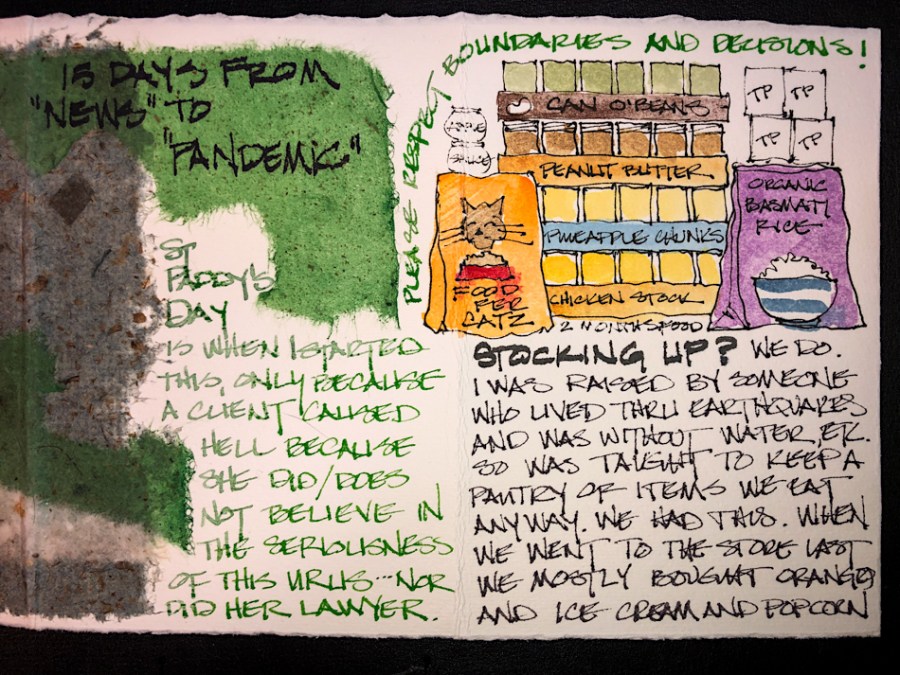 15 DAYS FROM
"NEWS" TO
"PANDEMIC"
ST
PADDY'S
DAY
IS WHEN I STARTED
THIS, ONLY BECAUSE
A CLIENT CAUSED
HELL BECAUSE
SHE DID/DOES
NOT BELIEVE IN
THE SERIOUSNESS
OF THIS VIRUS...NOR
DID HER LAWYER.
PLEASE RESPECT BOUNDARIES AND DECISIONS!
CAN O'BEANS
PEANUT BUTTER
PINEAPPLE CHUNKS
CHICKEN STOCK
APPLE
SAUCE
TP TP
TP TP
FOOD
FER
CATZ
ORGANIC
BASMATI
RICE
2 MONTHS FOOD
STOCKING UP? WE DO.
I WAS RAISED BY SOMEONE
WHO LIVED THRU EARTHQUAKES
AND WAS WITHOUT WATER, ETC.
SO WAS TAUGHT TO KEEP A
PANTRY OF ITEMS WE EAT
ANYWAY. WE HAD THIS. WHEN
WE WENT TO THE STORE LAST
WE MOSTLY BOUGHT ORANGES
AND ICE CREAM AND POPCORN